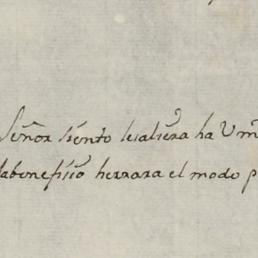 Señor siento lesaliera ha Vm
labonefisio herrara el modo p